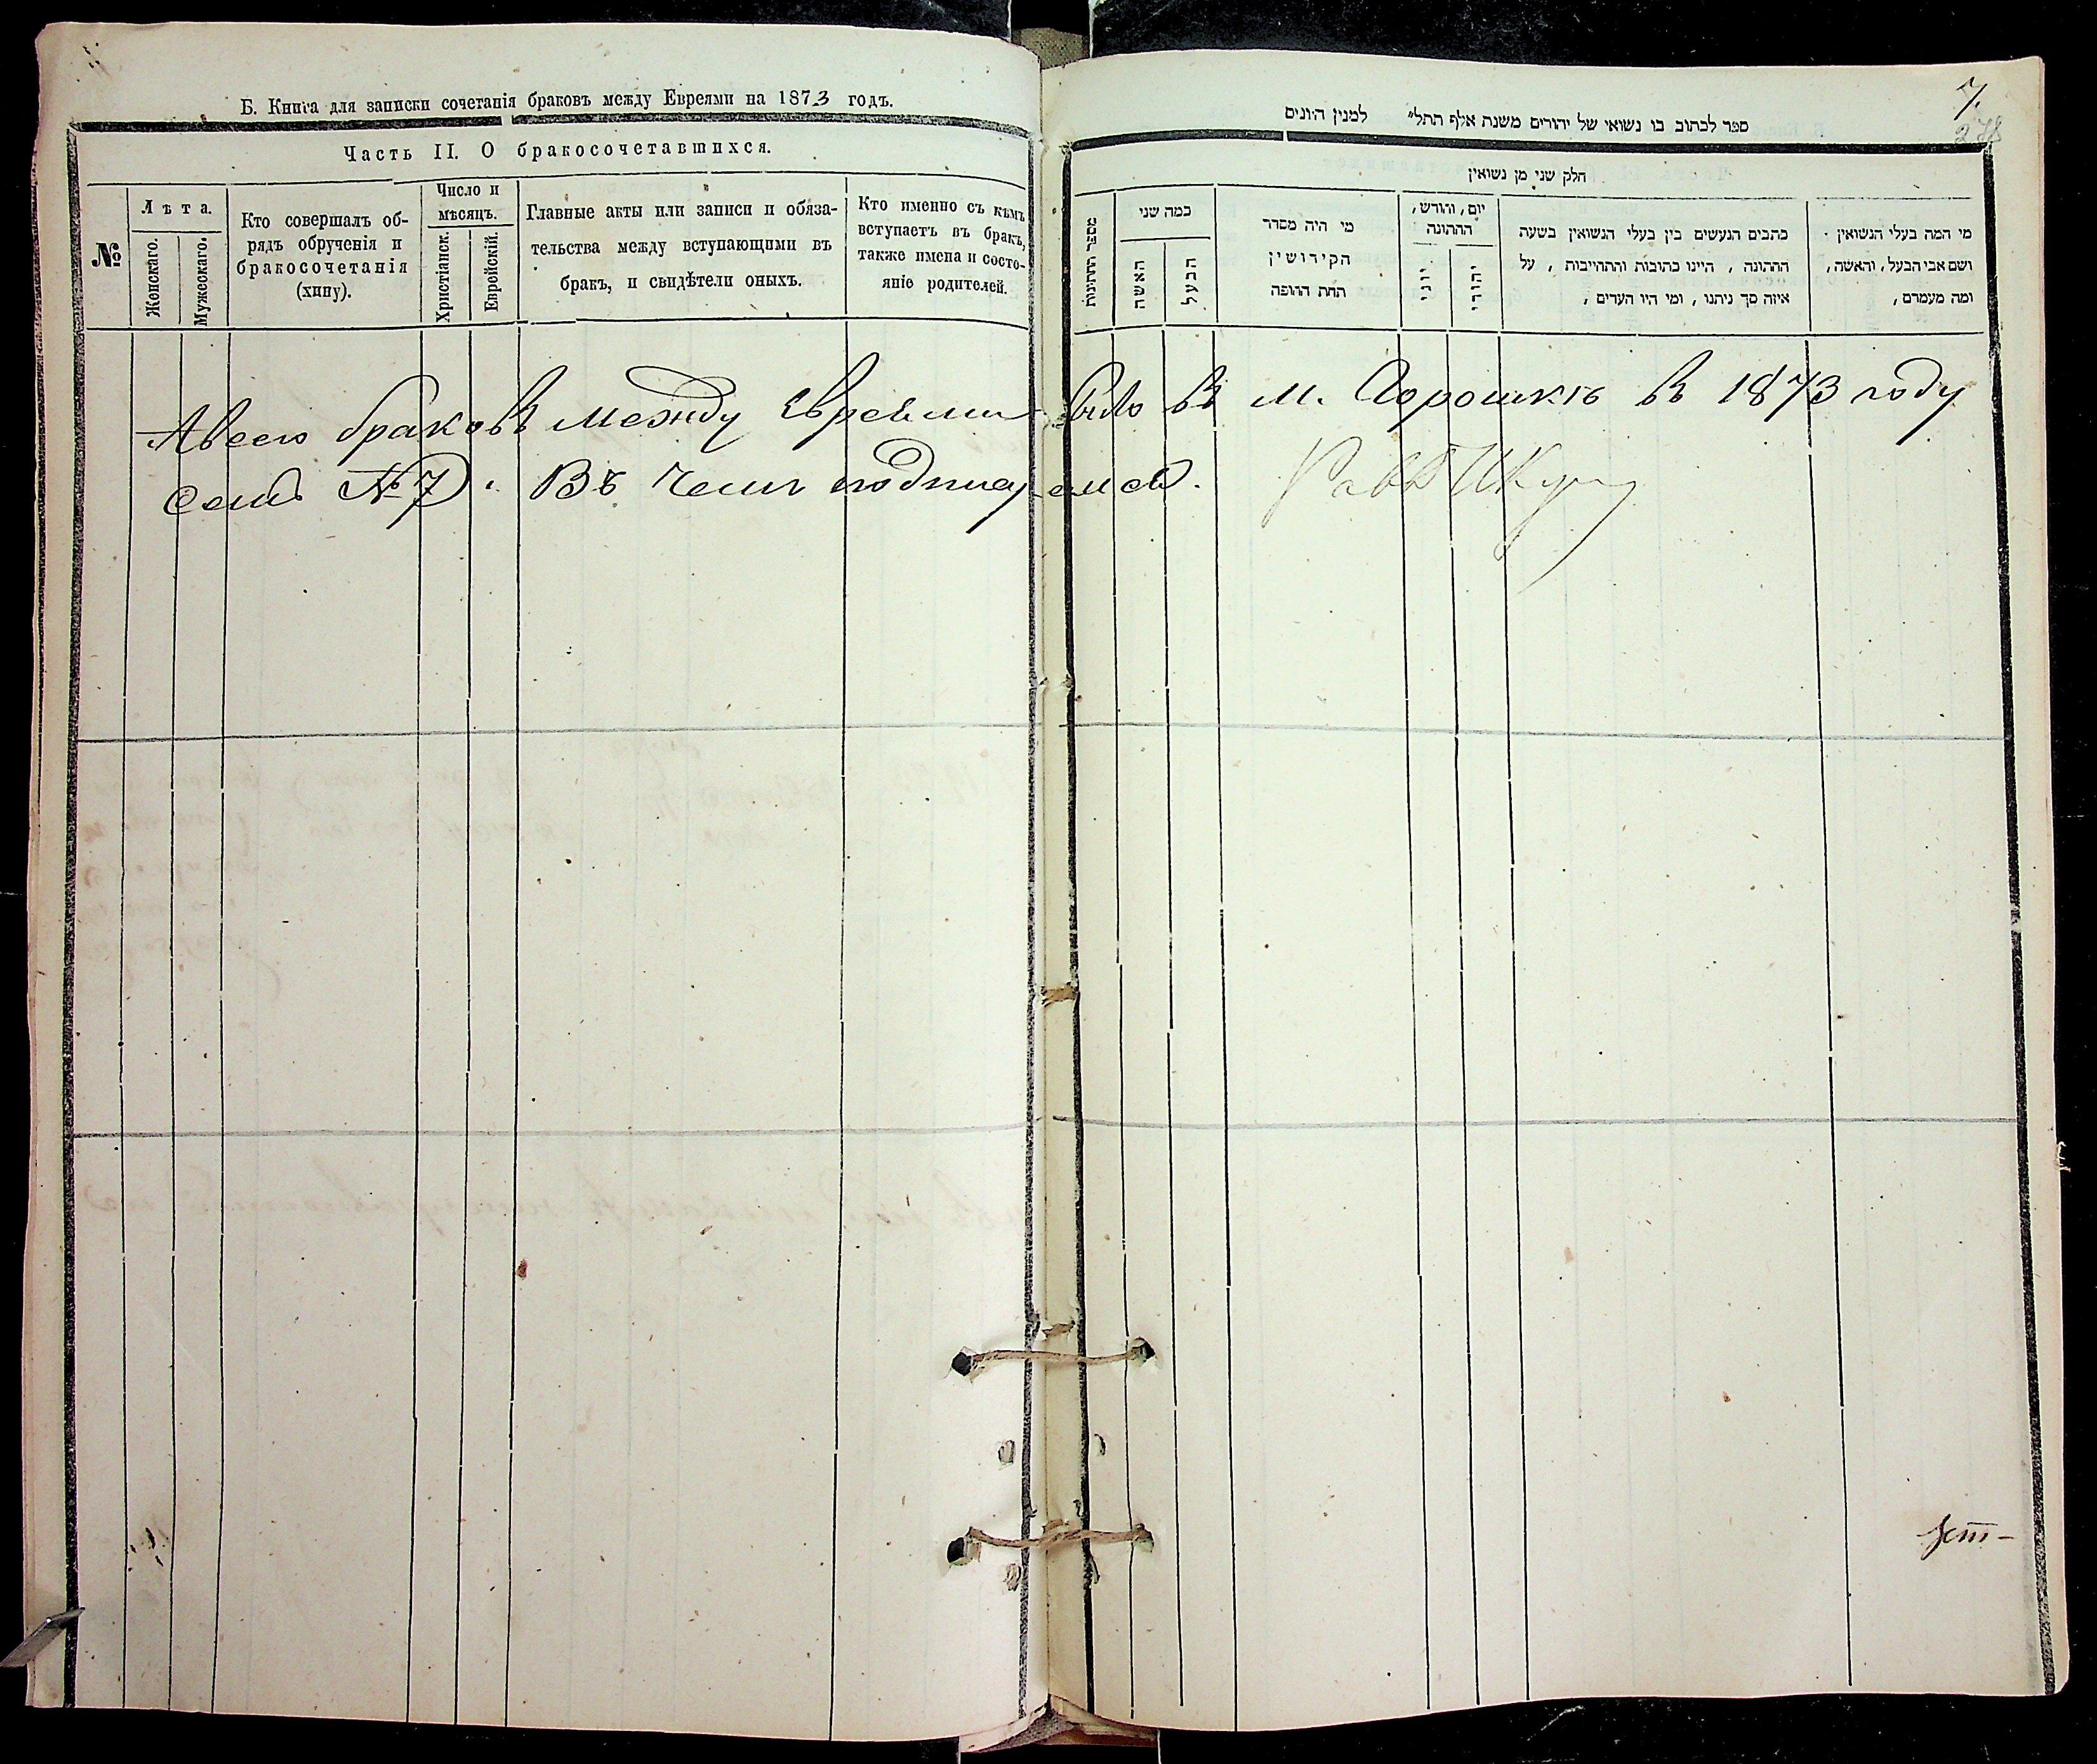 Б. Книга для записки сочетанія браковъ между Евреями на 1873 годъ.
Часть II. О бракосочетавшихся.
№
Лѣта.
Женскаго.
Мужескаго.
Кто совершалъ об-
рядъ обрученія и
бракосочетанія
(хипу).
Число и
мѣсяцъ.
Христіанск.
Еврейскій.
Главные акты или записи и обяза-
тельства между вступающими въ
бракъ, и свидѣтели оныхъ.
Кто именно съ кѣмъ
вступаетъ въ бракъ,
также имена и состо-
яніе родителей.
7.
278
ספר לכתוב בו נשואי של יהורים משנת אלף התל״ למנין היונים
חלק שני מן נשואין
מספר החתונות
כמה שני
האשה
הבעל
מי היה מסדר
הקידושין
תחת החופה
יום, וחורש,
החתונה
יוני
יהודי
כתבים הנעשים בין בעלי הנשואין בשעה
החתונה, היינו כתובות והתחייבות, על
איזה סך ניתנו, ומי היו העדים,
מי המה בעלי הנשואין
ושם אבי הבעל, והאשה,
ומה מעמדם,
А всего браковъ между Евреями было въ м. Горошкѣ въ 1873 году
семь №7. Въ чемъ подписуемся.